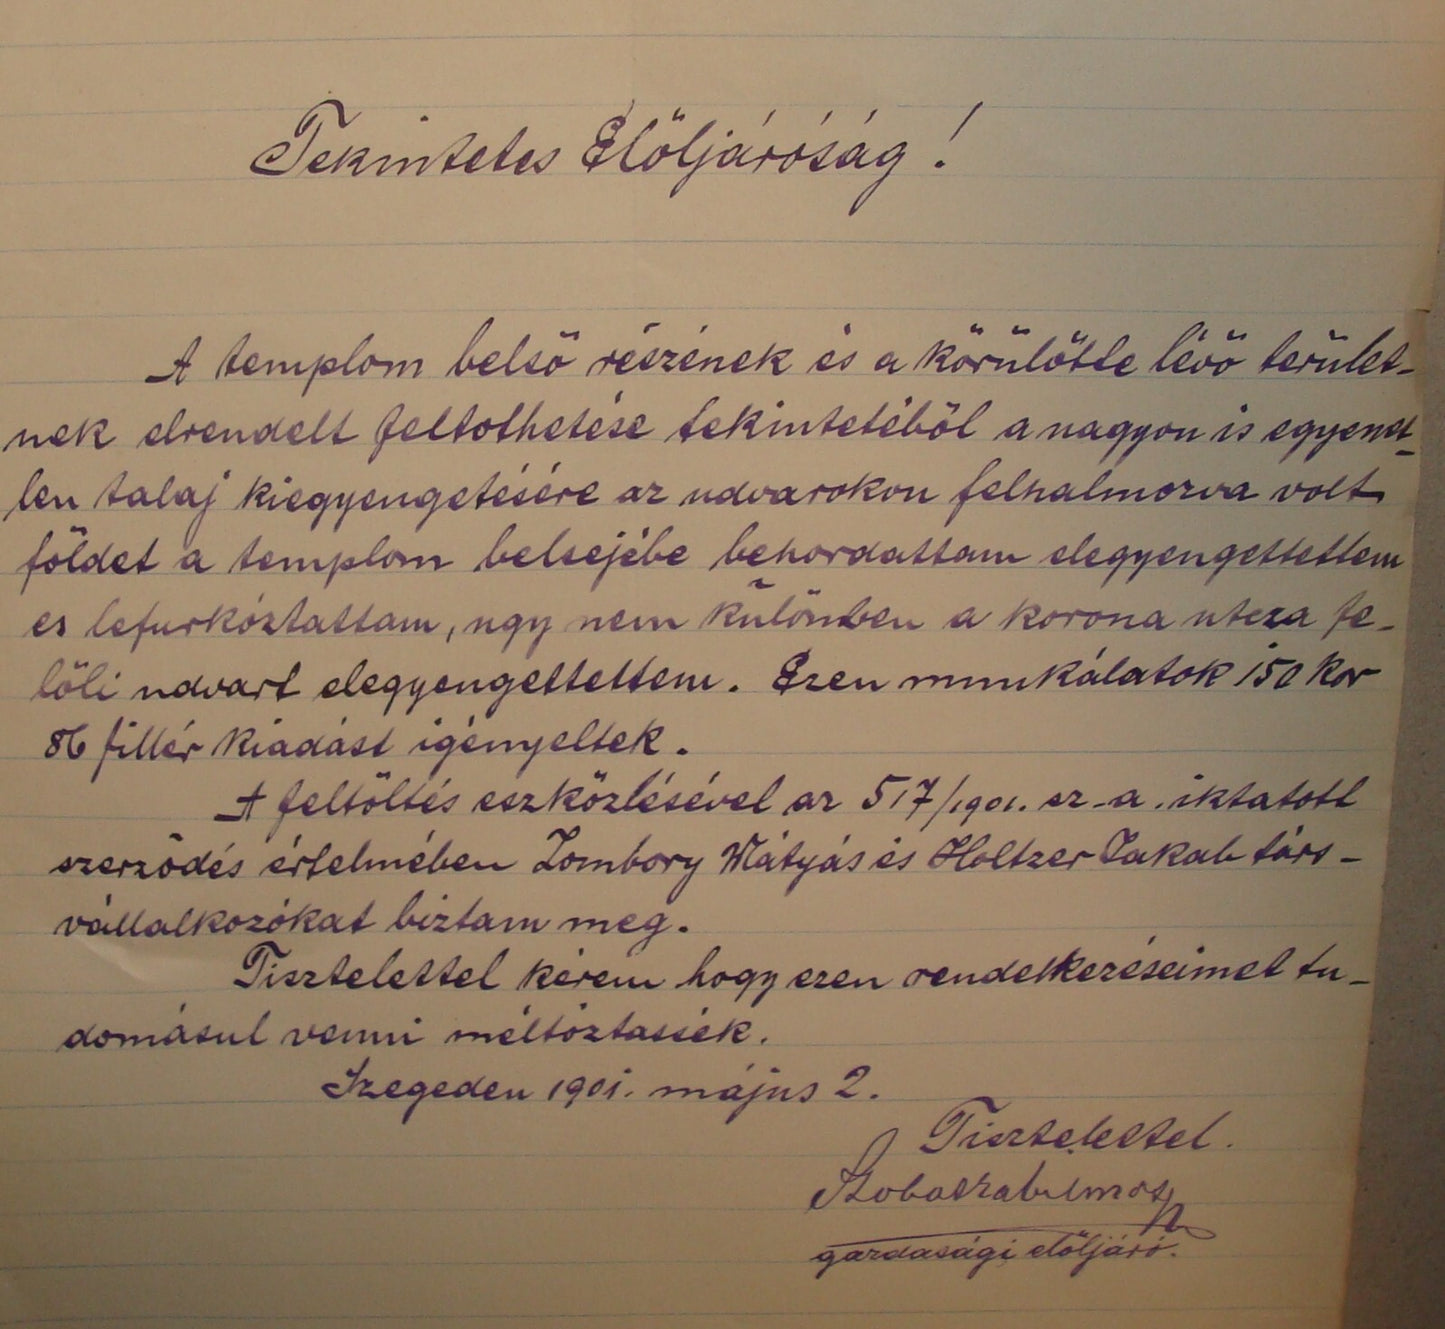 Tekintetes Elöljáróság!
A templom belső részének és a körülötte lévő terület-
nek elrendelt feltölthetése tekintetéből a nagyon is egyenet-
len talaj kiegyengetésére az udvarokon felhalmozva volt
földet a templom belsejébe behordattam elegyengettettem
es lefurkóztattam, ugy nem különben a korona utcza fe-
lőli udvart elegyengettettem. Ezen munkálatok 150 kor
86 fillér kiadást igényeltek.
A feltöltés eszközlésével az 517/1901. sz. a. iktatott
szerződés értelmében Zombory Mátyás és Holtzer Jakab társ-
vállalkozókat biztam meg.
Tisztelettel kérem hogy ezen rendelkezéseimet tu-
domásul venni méltóztassék.
Szegeden 1901. május 2.
Tisztelettel.
gazdasági elöljáró.